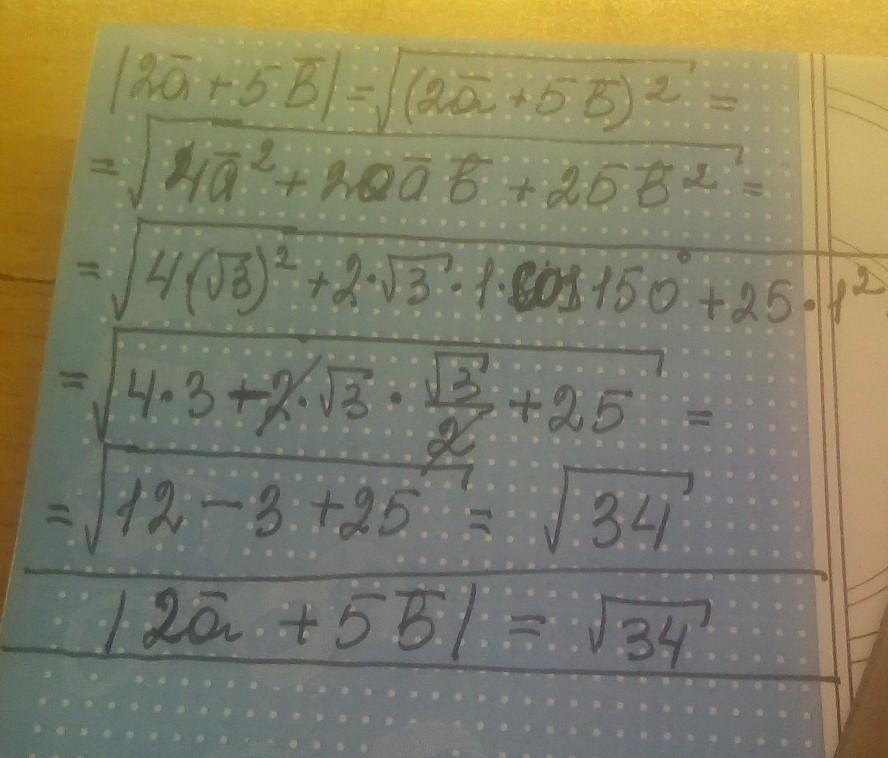 |2a̅ + 5b̅| = √(2a̅ + 5b̅)² =
= √4a̅² + 20a̅b̅ + 25b̅² =
= √4(√3)² + 2·√3·1·cos150° + 25·1²
= √4·3 + 2·√3·√3/2 + 25 =
= √12 - 3 + 25 = √34
|2a̅ + 5b̅| = √34